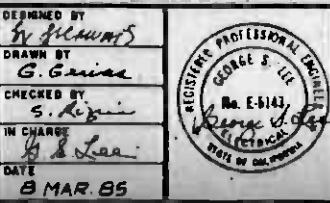 DESIGNED BY
DRAWN BY
G.
CHECKED BY
S.
IN CHARGE
G S Lee
DATE
8 MAR. 85
REGISTERED PROFESSIONAL ENGINEER
GEORGE S. LEE
No. E-6143
George S. Lee
ELECTRICAL
STATE OF CALIFORNIA